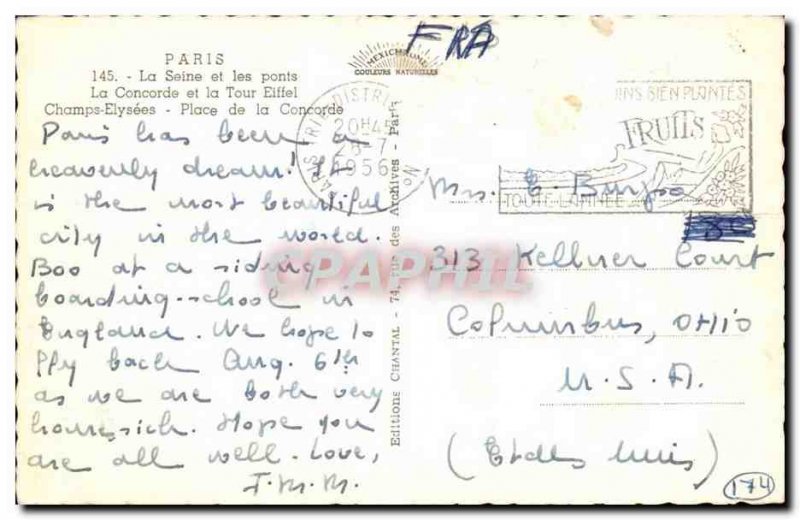 PARIS
145. - La Seine et les ponts
La Concorde et la Tour Eiffel
Champs-Elysées - Place de la Concorde
Paris has been a
heavenly dream! It
is the most beautiful
city in the world.
Boo at a riding
boarding-school in
England. We hope to
fly back Aug. 6th
as we are both very
homesick. Hope you
are all well. Love,
F.M.M.
Editions CHANTAL - 74, rue des Archives - Paris
MEXICHROME
COULEURS NATURELLES
FRA
PARIS TRI DISTRIB
20H45
28-7
1956
BIEN PLANTÉS
FRUITS
TOUTE L'ANNÉE
Mrs. E.
313 Kellner Court
Columbus, OHIO
U.S.A.
(Etats Unis)
174
CPAPHIL